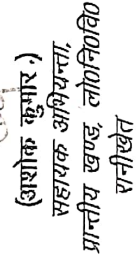 (अशोक कुमार)
सहायक अभियन्ता,
प्रान्तीय खण्ड, लो०नि०वि०
रानीखेत